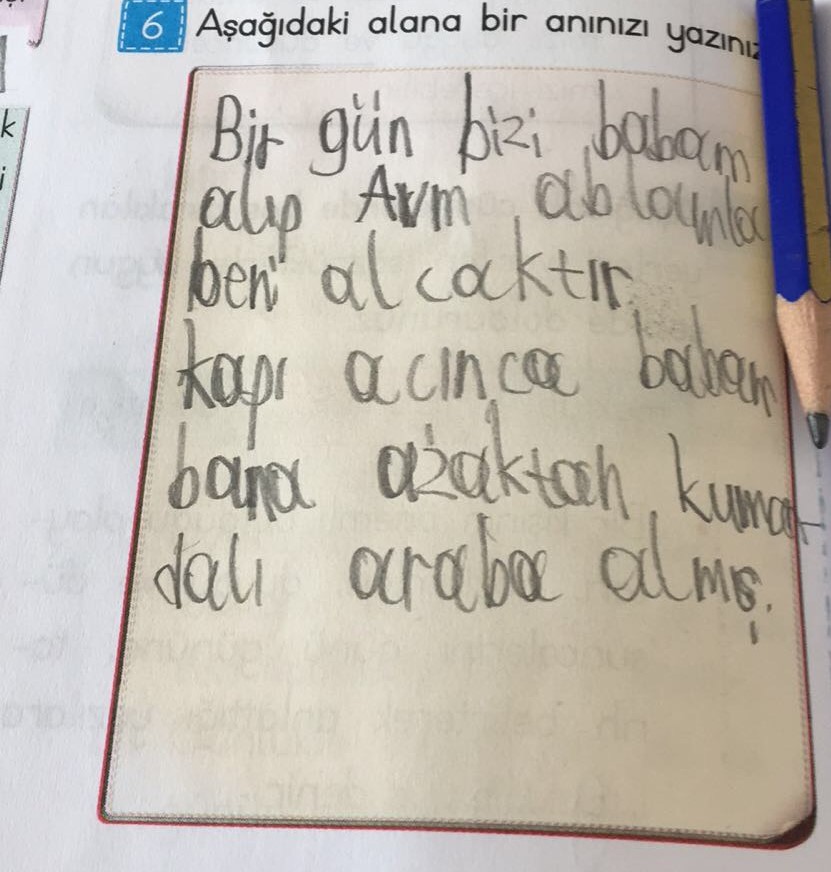 k
6 Aşağıdaki alana bir anınızı yazınız
Bir gün bizi babam
alıp Avm ablamla
beni alcaktır.
kapı acınca babam
bana azaktan kuman
dalı araba almış.